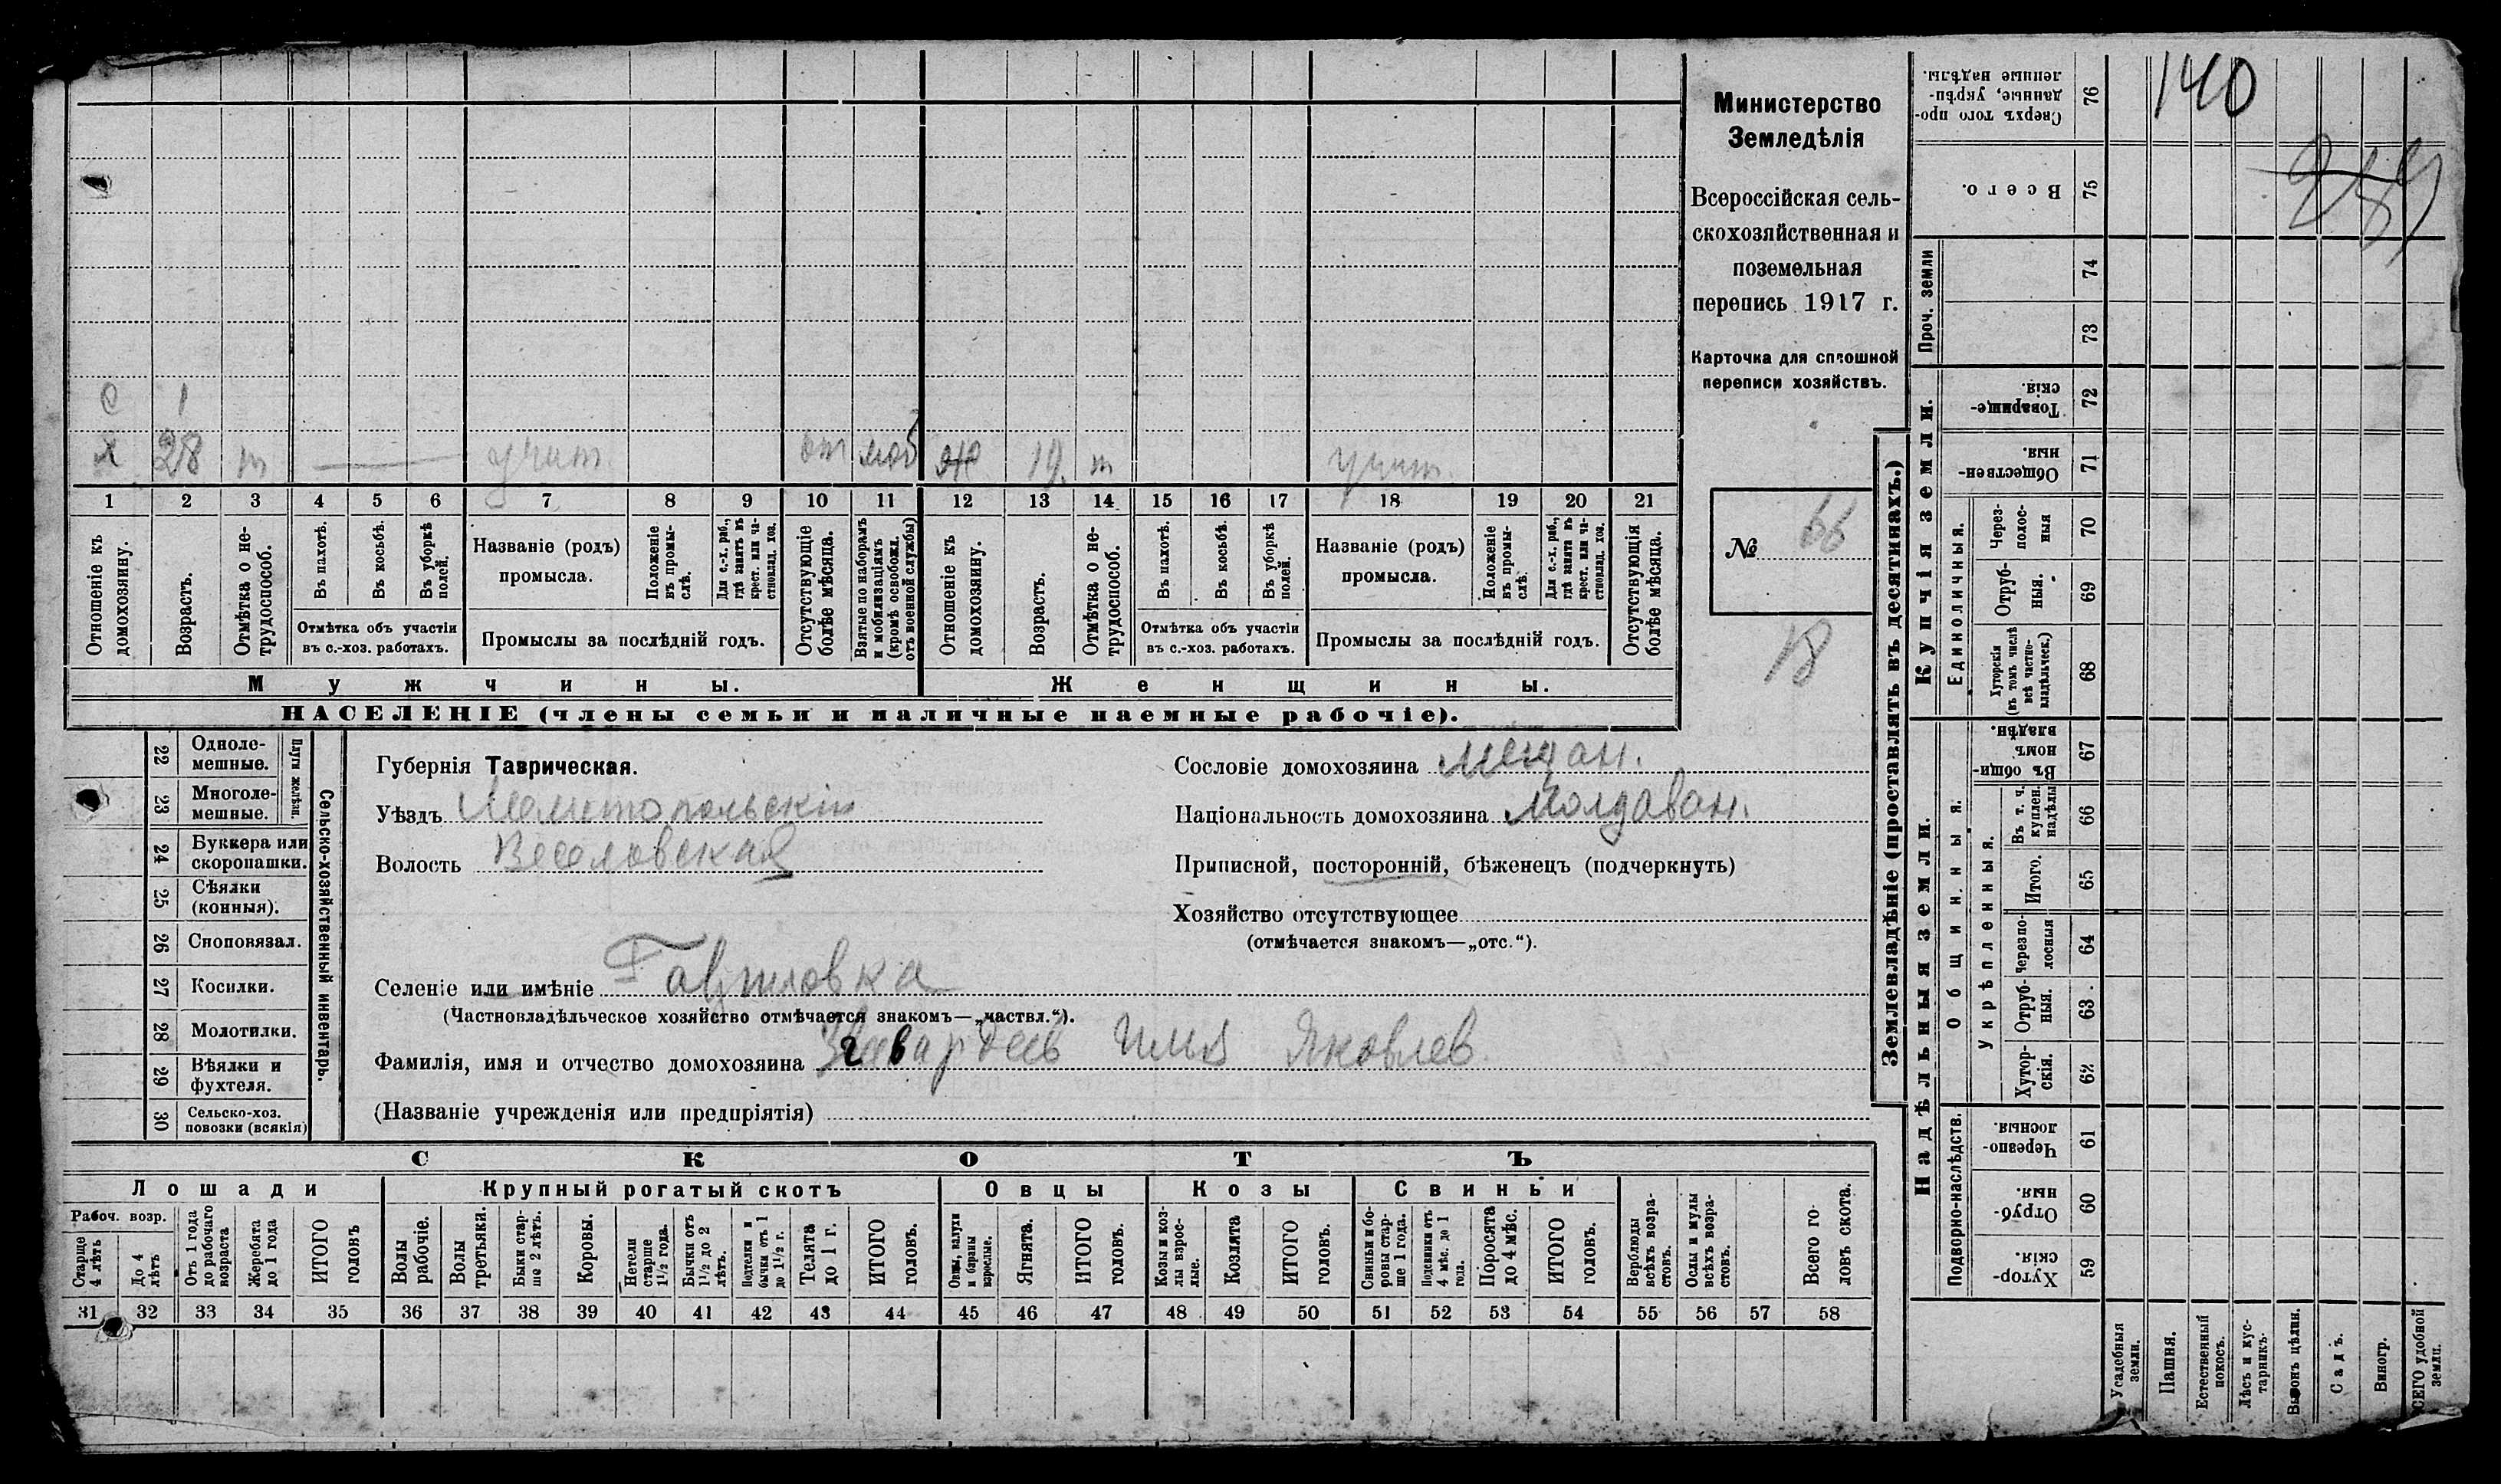 Министерство
Земледѣлія
Всероссійская сель-
скохозяйственная и
поземельная
перепись 1917 г.
Карточка для сплошной
переписи хозяйствъ.
№ 66
18
с 1
х 28 т учит. от моб ж 19 т учит.
1 2 3 4 5 6 7 8 9 10 11 12 13 14 15 16 17 18 19 20 21
Отношеніе къ домохозяину.
Возрастъ.
Отмѣтка о не-трудоспособ.
Въ пахотѣ.
Въ косьбѣ.
Въ уборкѣ полей.
Отмѣтка объ участіи
въ с.-хоз. работахъ.
Названіе (родъ)
промысла.
Положеніе въ промы-слѣ.
Для с.-х. раб., гдѣ занятъ въ крест. или ча-стновлад. хоз.
Промыслы за послѣдній годъ.
Отсутствующіе болѣе мѣсяца.
Взятые по наборамъ и мобилизаціямъ (кромѣ освобожд. отъ военной службы)
Отношеніе къ домохозяину.
Возрастъ.
Отмѣтка о не-трудоспособ.
Въ пахотѣ.
Въ косьбѣ.
Въ уборкѣ полей.
Отмѣтка объ участіи
въ с.-хоз. работахъ.
Названіе (родъ)
промысла.
Положеніе въ промы-слѣ.
Для с.-х. раб., гдѣ занята въ крест. или ча-стновлад. хоз.
Промыслы за послѣдній годъ.
Отсутствующія болѣе мѣсяца.
Мужчины.
Женщины.
НАСЕЛЕНІЕ (члены семьи и наличные наемные рабочіе).
22 Одноле-мешные.
23 Многоле-мешные.
Плуги желѣзн.
24 Буккера или скоропашки.
25 Сѣялки (конныя).
26 Сноповязал.
27 Косилки.
28 Молотилки.
29 Вѣялки и фухтеля.
30 Сельско-хоз. повозки (всякія)
Сельско-хозяйственный инвентарь.
Губернія Таврическая.
Уѣздъ Мелитопольскій
Волость Веселовская
Сословіе домохозяина мещан.
Національность домохозяина Молдаван.
Приписной, посторонній, бѣженецъ (подчеркнуть)
Хозяйство отсутствующее
(отмѣчается знакомъ—„отс.“).
Селеніе или имѣніе Гавриловка
(Частновладѣльческое хозяйство отмѣчается знакомъ—„частвл.“).
Фамилія, имя и отчество домохозяина Илья Яковлев
(Названіе учрежденія или предпріятія)
СКОТЪ
Лошади
Крупный рогатый скотъ
Овцы
Козы
Свиньи
Рабоч. возр.
Старше 4 лѣтъ
До 4 лѣтъ
Отъ 1 года до рабочаго возраста
Жеребята до 1 года
ИТОГО головъ
Волы рабочіе.
Волы третьяки.
Быки стар-ше 2 лѣтъ.
Коровы.
Нетели старше 1 1/2 года.
Бычки отъ 1 1/2 до 2 лѣтъ.
Подтелки и бычки отъ 1 до 1 1/2 г.
Телята до 1 г.
ИТОГО головъ.
Овцы, валухи и бараны взрослые.
Ягнята.
ИТОГО головъ.
Козы и коз-лы взрос-лые.
Козлята
ИТОГО головъ.
Свиньи и бо-ровы стар-ше 1 года.
Подсвинки отъ 4 мѣс. до 1 года.
Поросята до 4 мѣс.
ИТОГО головъ.
Верблюды всѣхъ возра-стовъ.
Ослы и мулы всѣхъ возра-стовъ.
Всего го-ловъ скота.
31 32 33 34 35 36 37 38 39 40 41 42 43 44 45 46 47 48 49 50 51 52 53 54 55 56 57 58
Землевладѣніе (проставлять въ десятинахъ.)
Надѣльныя земли.
Купчія земли.
Проч. земли
Подворно-наслѣдств.
Общинныя.
Укрѣпленныя.
Единоличныя.
Сверхъ того про-данные, укрѣп-ленные надѣлы. 76
Всего. 75
74
73
Товарище-скія. 72
Обществен-ныя. 71
Через-полос-ныя 70
Отруб-ныя. 69
Хуторскія (въ томъ числѣ всѣ частно-владѣльческ.) 68
Въ общин-номъ владѣн. 67
Въ т. ч. куплен. надѣлы 66
Итого. 65
Черезпо-лосныя 64
Отруб-ныя. 63
Хутор-скія. 62
Черезпо-лосныя. 61
Отруб-ныя. 60
Хутор-скія. 59
Усадебныя земли.
Пашня.
Естественный покосъ.
Лѣсъ и кус-тарникъ.
Выгонъ цѣлин.
Садъ.
Виногр.
ВСЕГО удобной земли.
140